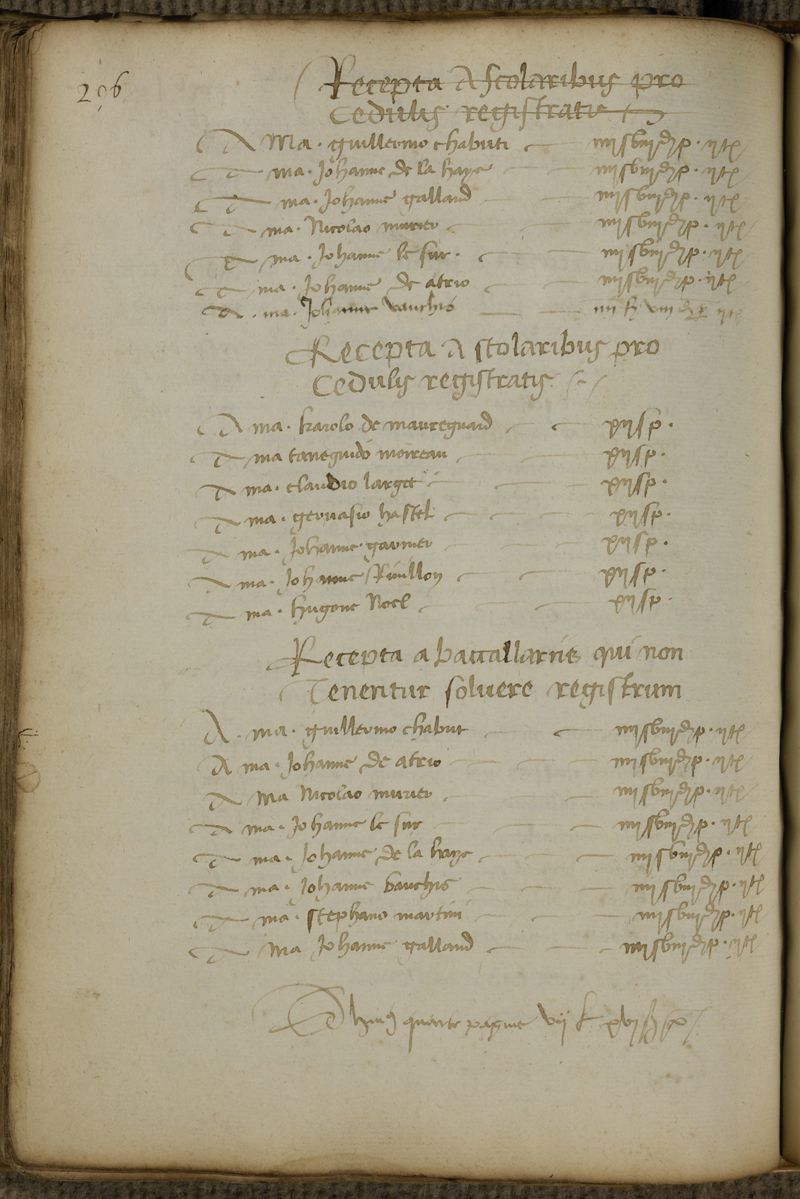 296
Recepta A scolaribus pro
Cedulis registratis
A Ma. guillermo chabuti iiij s viij d p. ij t
A ma. Johanne de la haye iiij s viij d p. ij t
A ma. Johanne galland iiij s viij d p. ij t
A ma. Nicolao murier iiij s viij d p. ij t
A ma. Johanne le sur. iiij s viij d p. ij t
A ma. Johanne de atrio iiij s viij d p. ij t
A. ma. Johanne vauchis iiij s viij d p ij t
Recepta A scolaribus pro
Cedulis registratis
A ma. karolo de mauregnard xij s p.
A ma taneguido moireau xij s p.
A ma. claudio larget xij s p.
A ma. gervasio hastel xij s p.
A ma. Johanne garnier xij s p.
A ma. Johanne Rivillon xij s p.
A ma. hugone Noel xij s p.
Recepta a baccallariis qui non
Tenentur solvere registrum
A. ma. guillermo chabut iiij s viij d p. ij t
A ma. Johanne de atrio iiij s viij d p. ij t
A Ma Nicolao murier iiij s viij d p. ij t
A ma. Johanne le sur iiij s viij d p. ij t
A ma. Johanne de la haye iiij s viij d p. ij t
A ma. Johanne bauchis iiij s viij d p. ij t
A ma. stephano martini iiij s viij d p. ij t
A Ma Johanne galland iiij s viij d p. ij t
quarte pagine vij